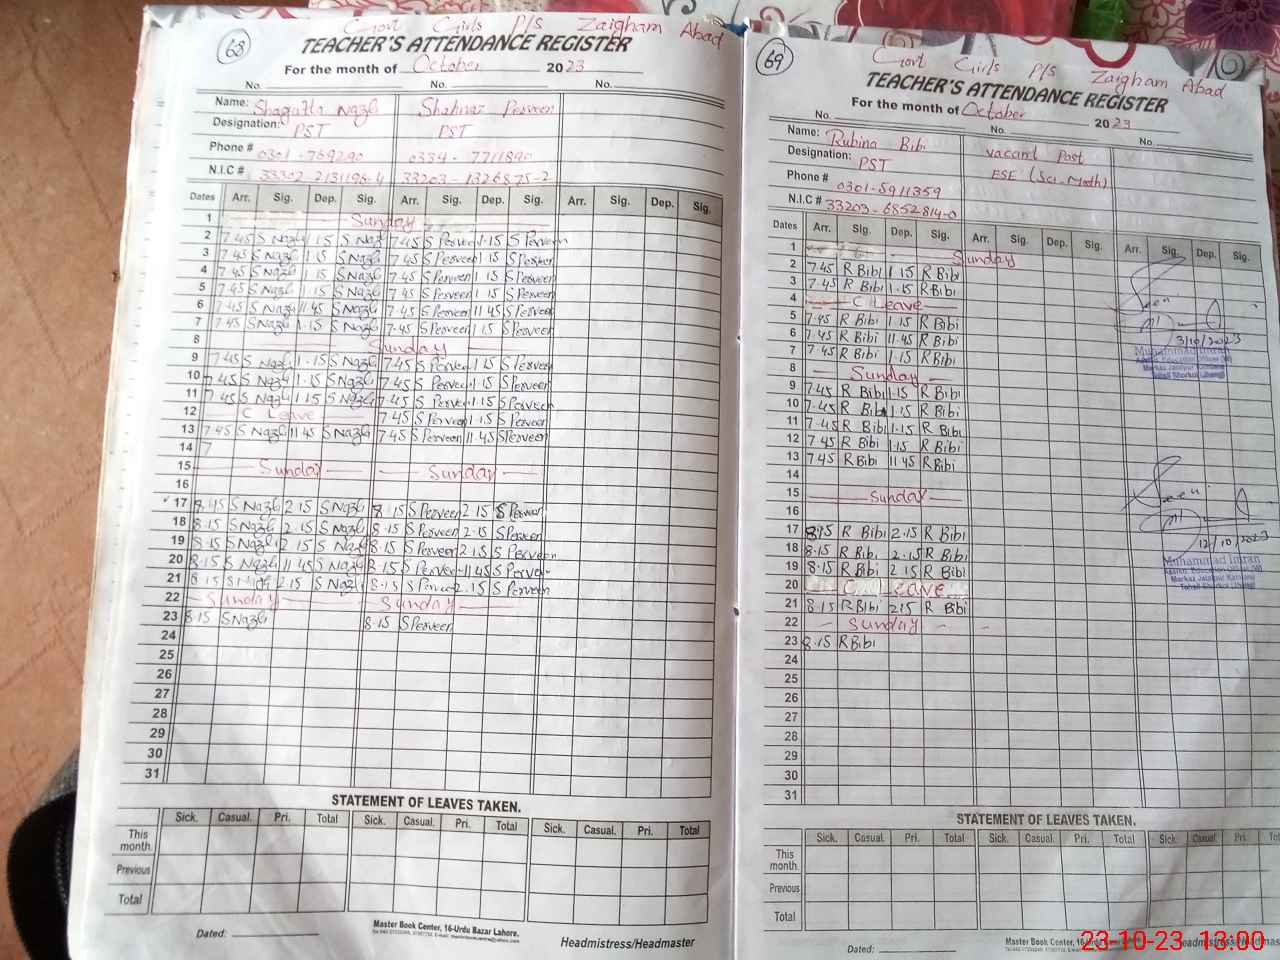 68
Govt Girls P/S Zaigham Abad
TEACHER'S ATTENDANCE REGISTER
For the month of October 2023
No. No. No.
Name: Shagafta Nazli Shahnaz Perveen
Designation: PST PST
Phone # 0301-769290 0334-7711890
N.I.C # 33302-2131198-4 33203-1326875-2
Dates Arr. Sig. Dep. Sig. Arr. Sig. Dep. Sig. Arr. Sig. Dep. Sig.
1 Sunday
2 7.45 S Nazli 1.15 S Nazli 7.45 S Perveen 1.15 S Perveen
3 7.45 S Nazli 1.15 S Nazli 7.45 S Perveen 1.15 S Perveen
4 7.45 S Nazli 1.15 S Nazli 7.45 S Perveen 1.15 S Perveen
5 7.45 S Nazli 1.15 S Nazli 7.45 S Perveen 1.15 S Perveen
6 7.45 S Nazli 11.45 S Nazli 7.45 S Perveen 11.45 S Perveen
7 7.45 S Nazli 1.15 S Nazli 7.45 S Perveen 1.15 S Perveen
8 Sunday
9 7.45 S Nazli 1.15 S Nazli 7.45 S Perveen 1.15 S Perveen
10 7.45 S Nazli 1.15 S Nazli 7.45 S Perveen 1.15 S Perveen
11 7.45 S Nazli 1.15 S Nazli 7.45 S Perveen 1.15 S Perveen
12 C Leave 7.45 S Perveen 1.15 S Perveen
13 7.45 S Nazli 11.45 S Nazli 7.45 S Perveen 11.45 S Perveen
14 7
15 Sunday Sunday
16
17 8.15 S Nazli 2.15 S Nazli 8.15 S Perveen 2.15 S Perveen
18 8.15 S Nazli 2.15 S Nazli 8.15 S Perveen 2.15 S Perveen
19 8.15 S Nazli 2.15 S Nazli 8.15 S Perveen 2.15 S Perveen
20 8.15 S Nazli 11.45 S Nazli 8.15 S Perveen 11.45 S Perveen
21 8.15 S Nazli 2.15 S Nazli 8.15 2.15 S Perveen
22 Sunday Sunday
23 8.15 S Nazli 8.15 S Perveen
24
25
26
27
28
29
30
31
STATEMENT OF LEAVES TAKEN.
Sick. Casual. Pri. Total Sick. Casual. Pri. Total Sick. Casual. Pri. Total
This month.
Previous
Total
Dated:
Master Book Center, 16-Urdu Bazar Lahore.
Headmistress/Headmaster
69
Govt Girls P/s Zaigham Abad
TEACHER'S ATTENDANCE REGISTER
For the month of October 2023
No. No. No.
Name: Rubina Bibi vacant Post
Designation: PST ESE (Sci-Math)
Phone # 0301-5911359
N.I.C # 33203-6852814-0
Dates Arr. Sig. Dep. Sig. Arr. Sig. Dep. Sig. Arr. Sig. Dep. Sig.
1 Sunday
2 7.45 R Bibi 1.15 R Bibi
3 7.45 R Bibi 1.15 R Bibi
4 C Leave
5 7.45 R Bibi 1.15 R Bibi
6 7.45 R Bibi 11.45 R Bibi
7 7.45 R Bibi 1.15 R Bibi
3/10/2023
Muhammad Imran
8 Sunday
9 7.45 R Bibi 1.15 R Bibi
10 7.45 R Bibi 1.15 R Bibi
11 7.45 R Bibi 1.15 R Bibi
12 7.45 R Bibi 1.15 R Bibi
13 7.45 R Bibi 11.45 R Bibi
14
15 Sunday
16
17 8.15 R Bibi 2.15 R Bibi
12/10/2023
18 8.15 R Bibi 2.15 R Bibi
Muhammad Imran
19 8.15 R Bibi 2.15 R Bibi
20 Leave
21 8.15 R Bibi 2.15 R Bibi
22 Sunday
23 8.15 R Bibi
24
25
26
27
28
29
30
31
STATEMENT OF LEAVES TAKEN.
Sick. Casual. Pri. Total Sick. Casual. Pri. Total Sick. Casual.
This month.
Previous
Total
Dated:
Master Book Center, 16-Urdu
23-10-23 13:00